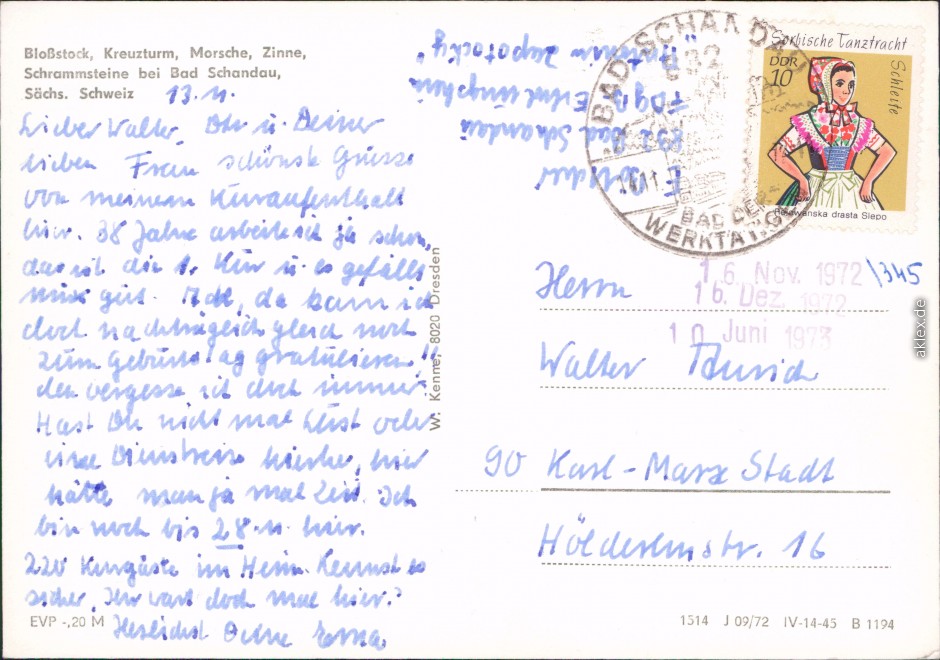 Bloßstock, Kreuzturm, Morsche, Zinne,
Schrammsteine bei Bad Schandau,
Sächs. Schweiz
13.11.
Lieber Walter, Dir u. Deiner
lieben Frau schönste Grüsse
von meinem Kuraufenthalt
hier. 38 Jahre arbeite ich ja schon,
das ist die 1. Kur u. es gefällt
mir gut. da kann ich
doch nachträglich gleich noch
zum Geburtstag gratulieren!!
den vergesse ich doch immer.
Hast Du nicht mal Lust oder
eine Dienstreise hierher, hier
hätte man ja mal Zeit. Ich
bin noch bis 28.11. hier.
220 Kurgäste im Heim. Kennst es
sicher, Ihr wart doch mal hier?
Herzlichst Deine Erna.
EVP -,20 M
W. Kenne, 8020 Dresden
E.
832 Bad Schandau
FDGB Erholungsheim
Zapotocky"
BAD SCHANDAU
832
BAD DER
WERKTÄTIGEN
Sorbische Tanztracht
DDR
10
Schleife
drasta Slepo
16. Nov. 1972
16. Dez. 1972
10. Juni 1973
1345
Herrn
Walter
90 Karl-Marx Stadt
Hölderlinstr. 16
1514 J 09/72 IV-14-45 B 1194
aklex.de